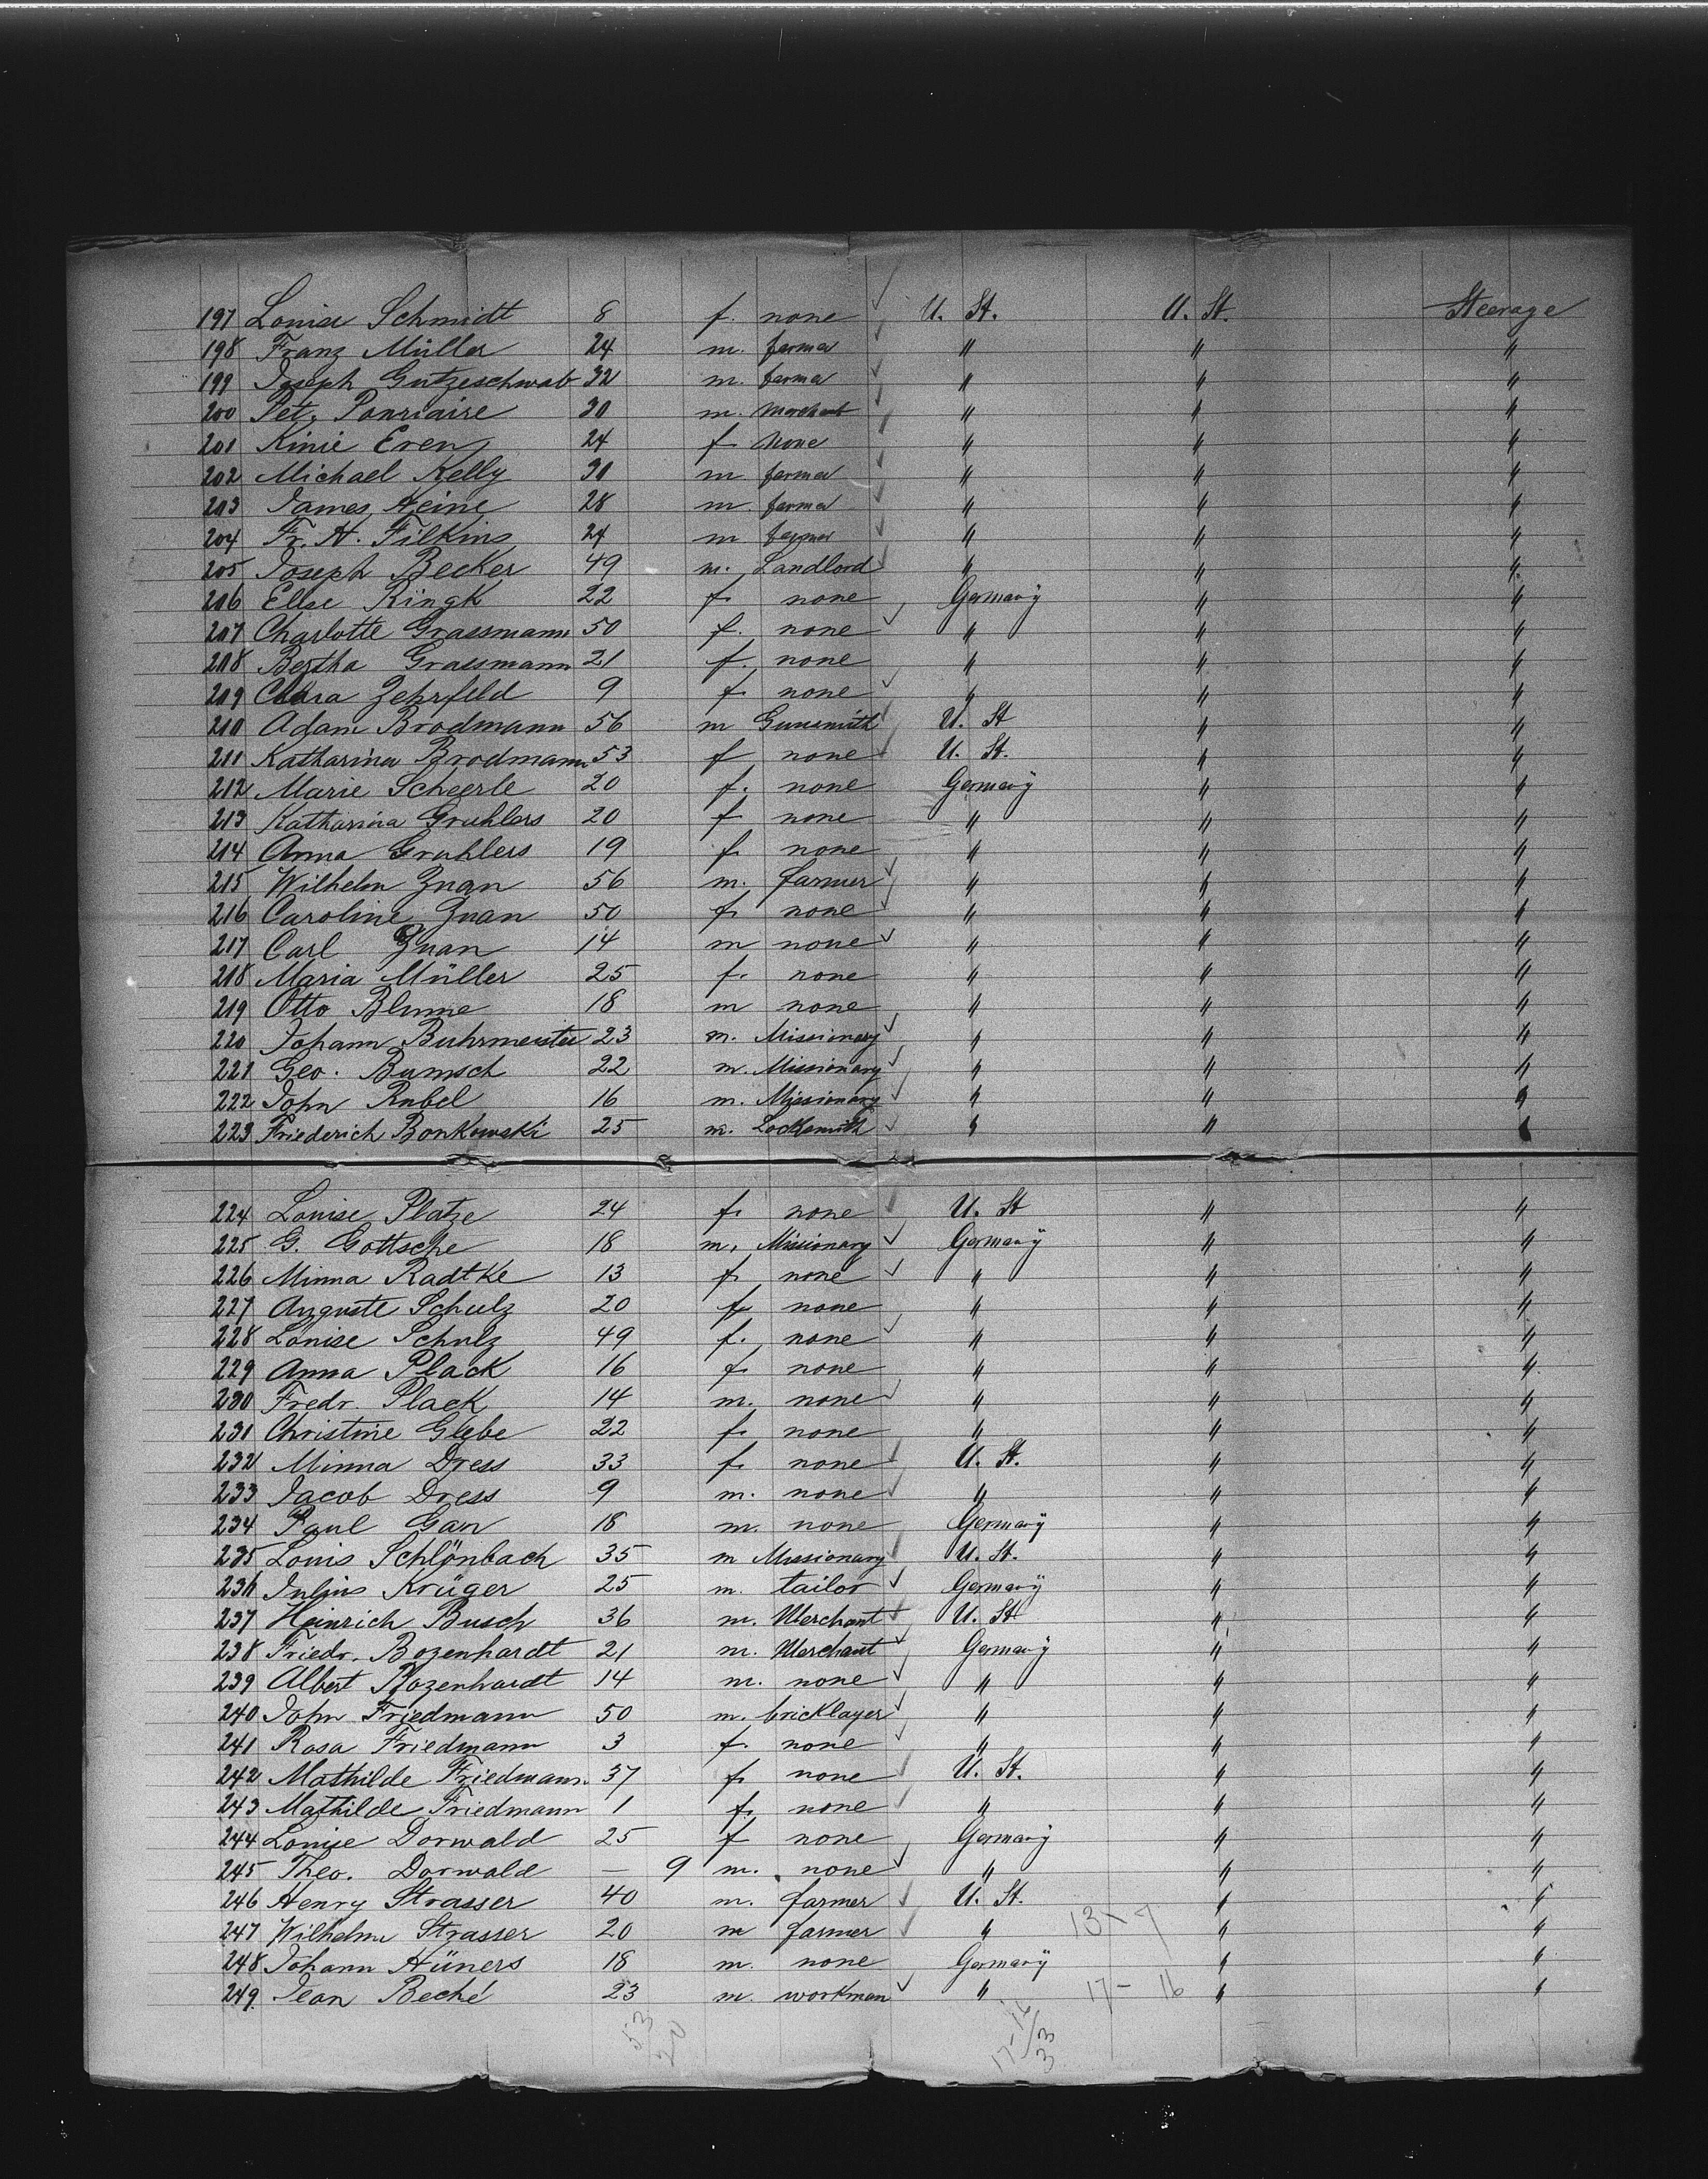 197 Louise Schmidt 8 f. none U. St. U. St. Steerage
198 Franz Müller 24 m. farmer " " "
199 Joseph Gutzeschwab 32 m. farmer " " "
200 Pet. 30 m. Merchant " " "
201 Kinie Eren 24 f none " " "
202 Michael Kelly 30 m farmer " " "
203 James Heine 28 m farmer " " "
204 Fr. H. Filkins 24 m farmer " " "
205 Joseph Becker 49 m. Landlord " " "
206 Else Ringk 22 f none Germany " "
207 Charlotte Grassmann 50 f. none " " "
208 Bertha Grassmann 21 f. none " " "
209 Clara Zehrfeld 9 f. none " " "
210 Adam Brodmann 56 m Gunsmith U. St " "
211 Katharina Brodmann 53 f none U. St. " "
212 Marie Scheerle 20 f. none Germany " "
213 Katharina Gruhlers 20 f none " " "
214 Anna Gruhlers 19 f. none " " "
215 Wilhelm Znan 56 m. farmer " " "
216 Caroline Znan 50 f. none " " "
217 Carl Znan 14 m none " " "
218 Maria Müller 25 f. none " " "
219 Otto Blume 18 m none " " "
220 Johann Buhrmeister 23 m. Missionary " " "
221 Geo. Bumsch 22 m. Missionary " " "
222 John Rubel 16 m. Missionary " " "
223 Friederich Bonkowski 25 m. Locksmith " " "
224 Louise Platze 24 f. none U. St " "
225 G. Gottsche 18 m. Missionary Germany " "
226 Minna Radtke 13 f. none " " "
227 Auguste Schulz 20 f. none " " "
228 Louise Schulz 49 f. none " " "
229 Anna Plack 16 f none " " "
230 Fredr. Plack 14 m. none " " "
231 Christine Glebe 22 f. none " " "
232 Minna Dress 33 f. none U. St. " "
233 Jacob Dress 9 m. none " " "
234 Paul Gan 18 m. none Germany " "
235 Louis Schlönbach 35 m Missionary U. St. " "
236 Julius Krüger 25 m. tailor Germany " "
237 Heinrich Busch 36 m. Merchant U. St " "
238 Friedr. Bozenhardt 21 m. Merchant Germany " "
239 Albert Bozenhardt 14 m. none " " "
240 John Friedmann 50 m. bricklayer " " "
241 Rosa Friedmann 3 f. none " " "
242 Mathilde Friedmann 37 f. none U. St. " "
243 Mathilde Friedmann 1 f. none " " "
244 Louise Dorwald 25 f none Germany " "
245 Theo. Dorwald — 9 m. none " " "
246 Henry Strasser 40 m. farmer U. St. " "
247 Wilhelm Strasser 20 m farmer " 13 - 7 " "
248 Johann Hüners 18 m. none Germany " "
249. Jean Beché 23 m. workman " 17 - 16 " "
53
20
17-16/33
3